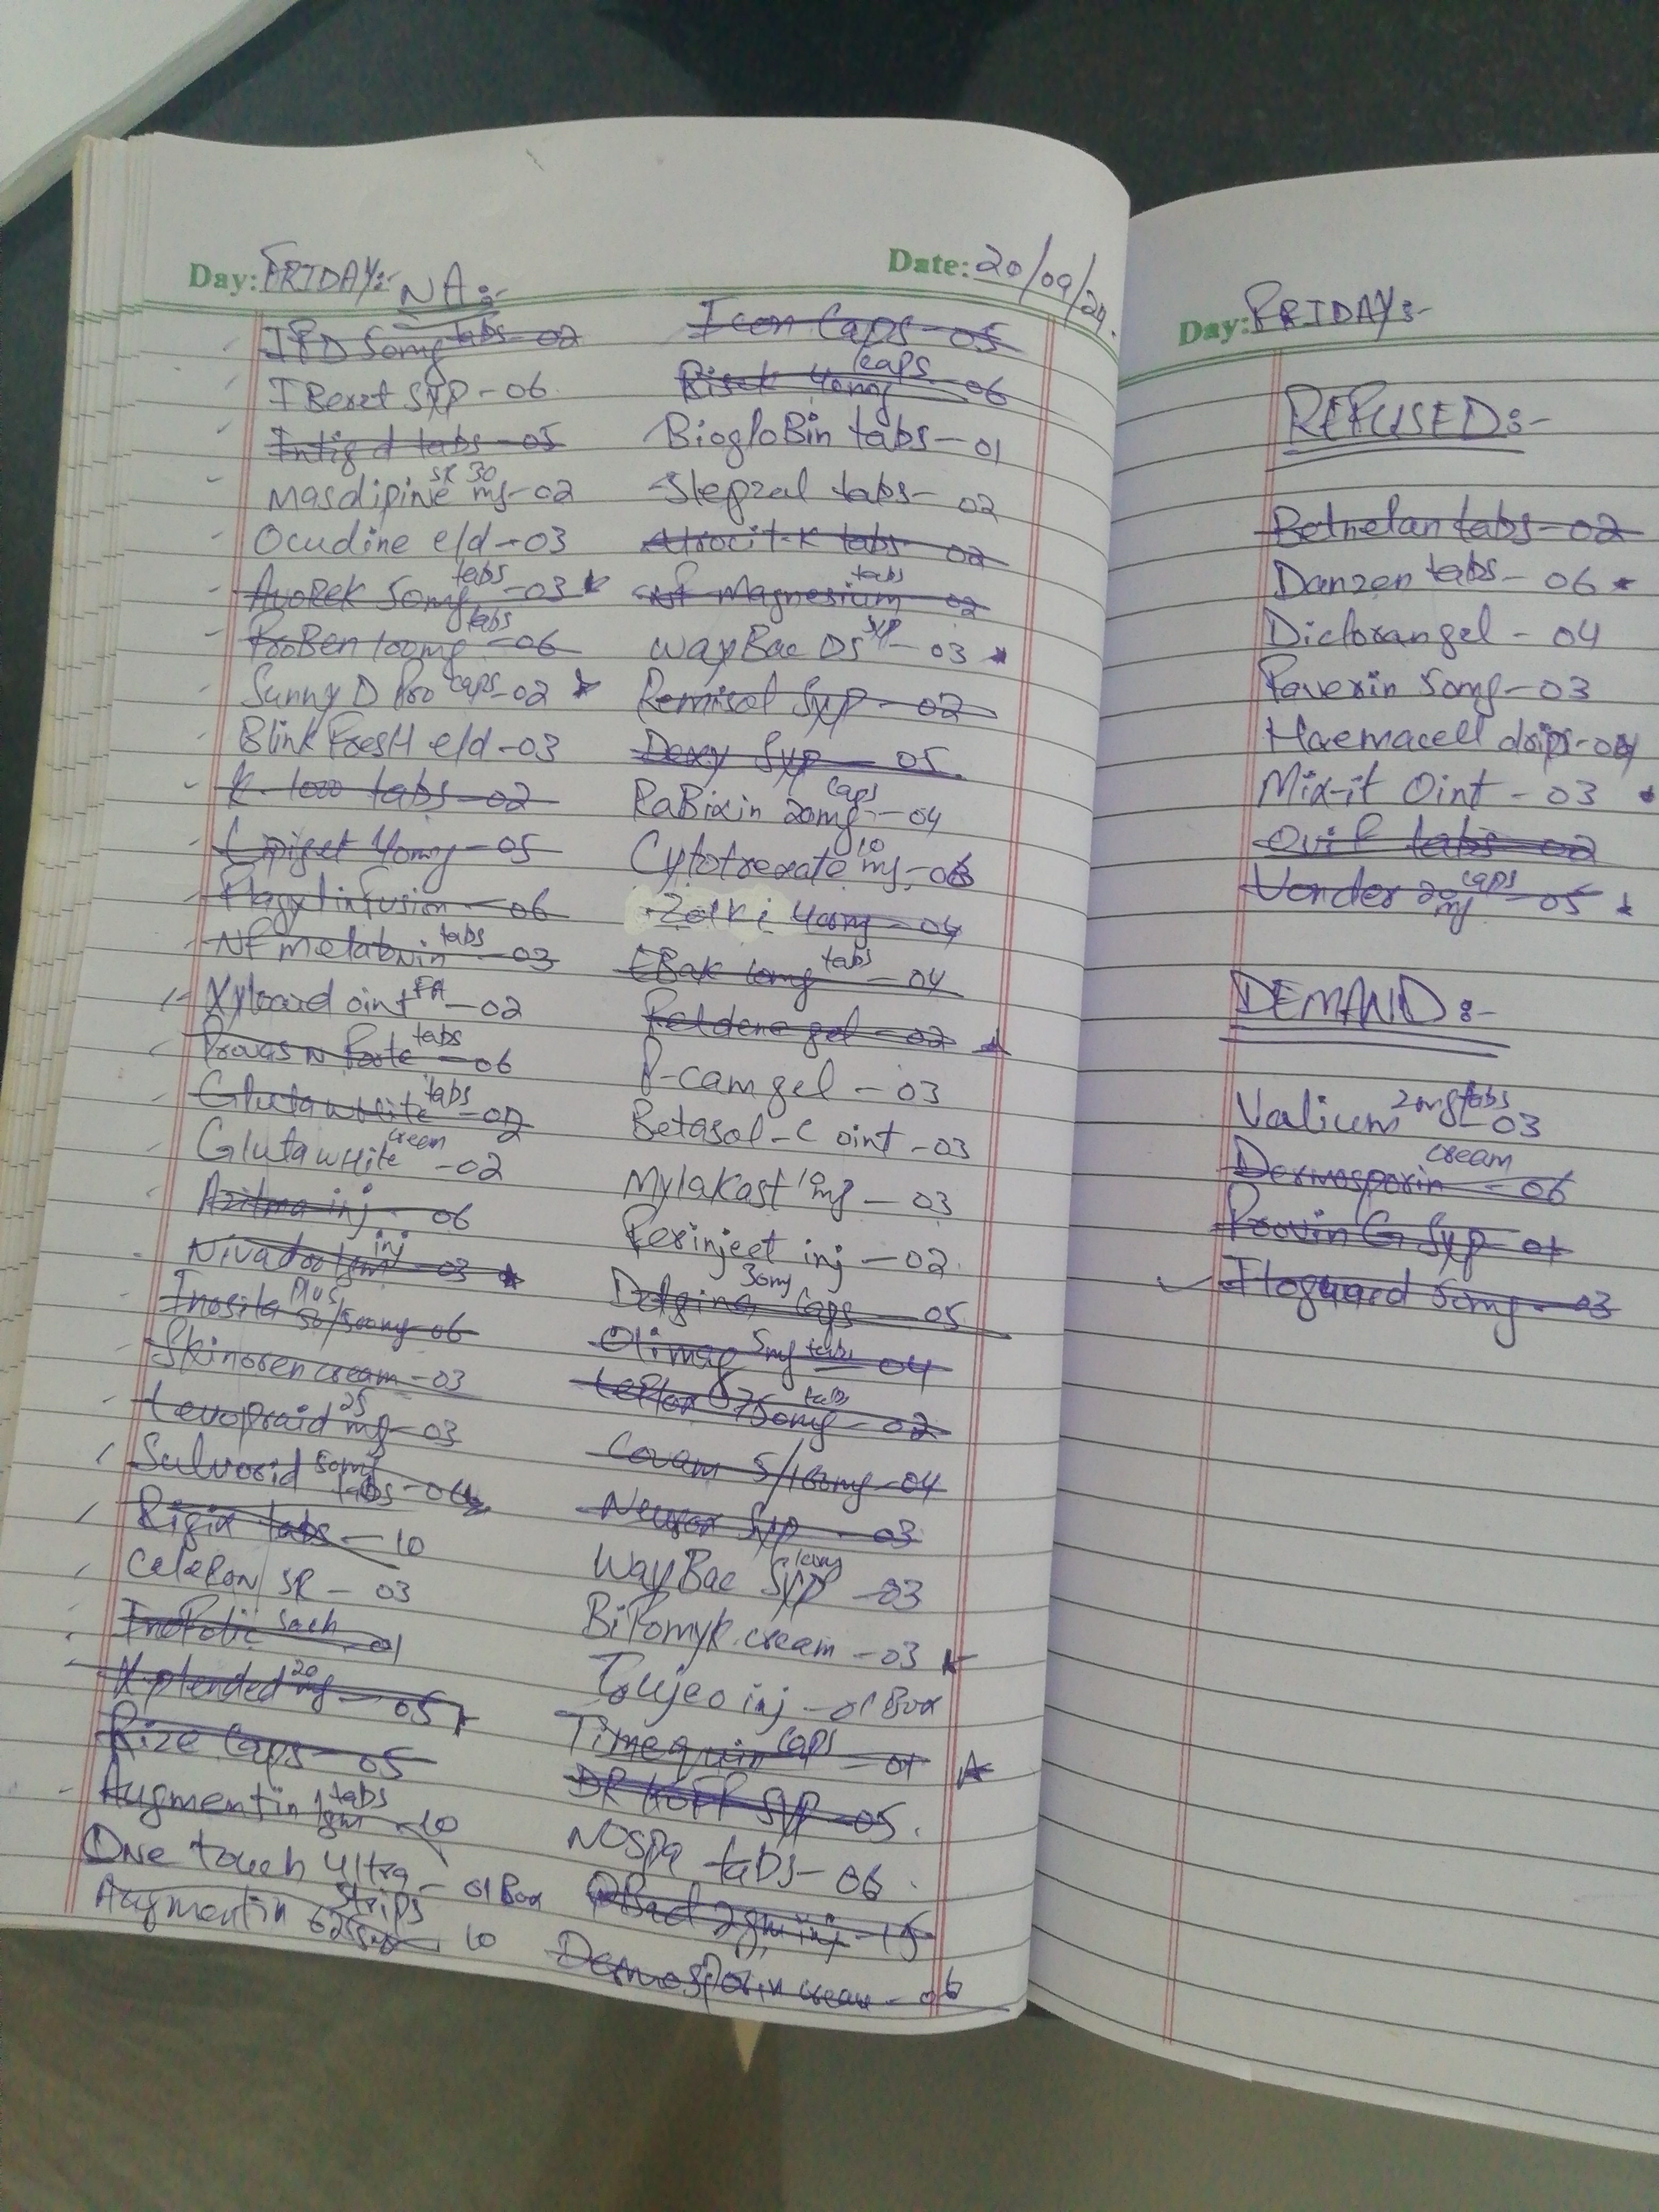 Day: FRIDAY:- NA:-
Date: 20/09/24.
IPD 50mg tabs - 02
IBeret syp - 06
Intig d tabs - 05
Masdipine SR 30 mg - 02
Ocudine e/d - 03
Avorek 50mg tabs - 03
ProBen 100mg tabs - 06
Sunny D Pro caps - 02
Blink FresH e/d - 03
K-1000 tabs - 02
Lipiget 40mg - 05
Flagyl infusion - 06
NF melatonin tabs - 03
Xyloaid oint PA - 02
Provas N Forte tabs - 06
Gluta white tabs - 02
Gluta white cream - 02
Azitma inj - 06
Nivador 1gm inj - 03
Inosita Plus 50/500mg 06
Skinoren cream - 03
Levopraid 25 mg - 03
Salvorid 50mg tabs - 04
Rigix tabs - 10
CeleRon SR - 03
InoFolic sach - 01
X-plended 20 mg - 05
Rize Caps - 05
Augmentin 1gm tabs - 10
One touch Ultra Strips - 01 Box
Augmentin 625mg 10
Icon Caps - 05
Risek 40mg caps - 06
BiogloBin tabs - 01
Slepzal tabs - 02
Atrocit-K tabs - 02
NF Magnesium tabs 02
WayBac DS syp - 03
Remisol Syp - 02
Dexy Syp - 05
RaBixin 20mg Caps - 04
Cytotrexate 10 mg - 03
Zolki 40mg - 04
EBak 10mg tabs - 04
Feldene gel - 02
P-cam gel - 03
Betasol-C oint - 03
Mylakast 10mg - 03
Ferinject inj - 02
Delgina 30mg Caps - 05
Olimap 5mg tabs 04
Leflox 750mg tabs - 02
Covam 5/160mg - 04
Neuron Syp - 03
WayBac Syp - 03
BiPomyk cream - 03
Toujeo inj - 01 Box
Timequin Caps - 01
DR KOFF Syp - 05
NOSPA tabs - 06
2gm inj - 15
Dermosporin cream - 06
Day: FRIDAY:-
REFUSED:-
Betnelan tabs - 02
Danzen tabs - 06
Dicloran gel - 04
Paverin 50mg - 03
Haemacell drips - 04
Mix-it Oint - 03
Ovif tabs - 02
Vonder 20 mg caps - 05
DEMAND:-
Valium 2mg tabs - 03
Dermosporin cream - 06
Provin G Syp - 01
Itoguard 50mg - 03